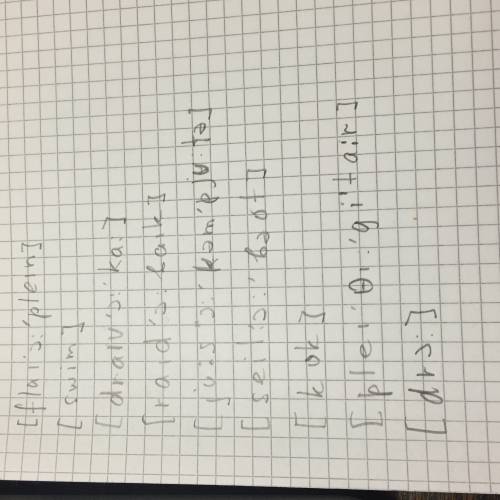 [flai'ɔ:'plein]
[swim]
[draiv'ɔ:'ka:]
[raid'ɔ:'baik]
[ju:s'ɔ:'kəm'pju:tə]
[seil'ɔ:'bəʊt]
[kʊk]
[plei'θı:'gi'ta:r]
[drɔ:]